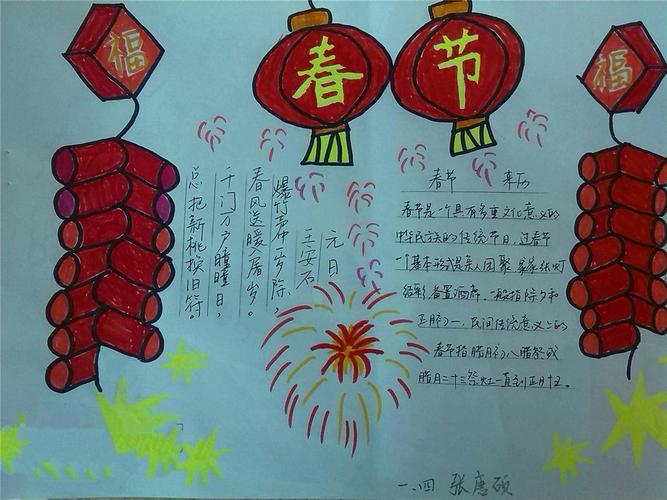 福
春节
福
元日
王安石
爆竹声中岁除,
春风送暖屠岁。
千门万户瞳瞳日,
总把新桃换旧符。
春节 来历
春节是一个具有多重文化意义的
中华民族的传统节日,过春节
一个基本 是亲人团聚,家家张灯
结彩,备置酒席,一般指除夕和
正月初一,民间传统意义上的
春节指腊月初八腊祭或
腊月二十三祭灶一直到正月十五。
一、四 张唐硕